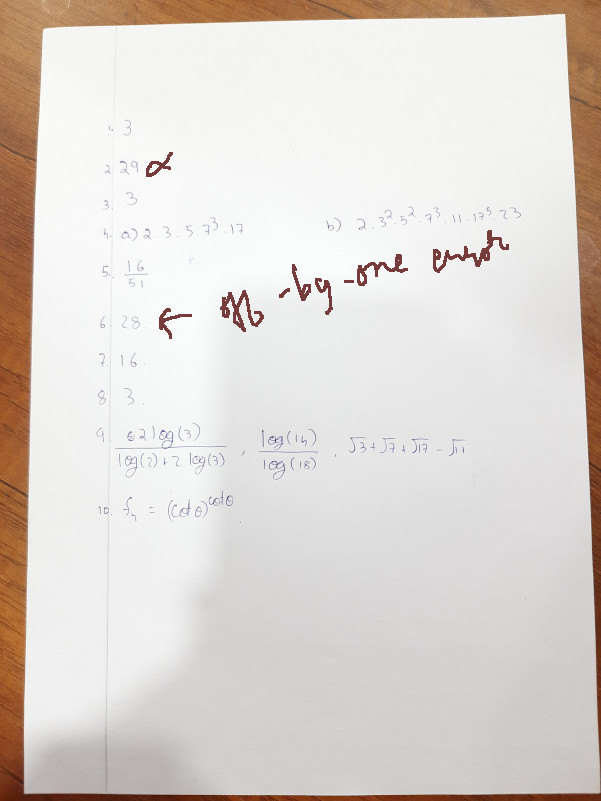 1. 3
2. 29 α
3. 3
4. a) 2.3.5.7³.17 b) 2.3².5².7³.11.17⁵.23
5. 16/51
6. 28. ← off-by-one error
7. 16.
8. 3.
9. 2log(3)/log(2)+2log(3), log(14)/log(18), √3+√7+√17-√11
10. f₄ = (cotθ)^cotθ